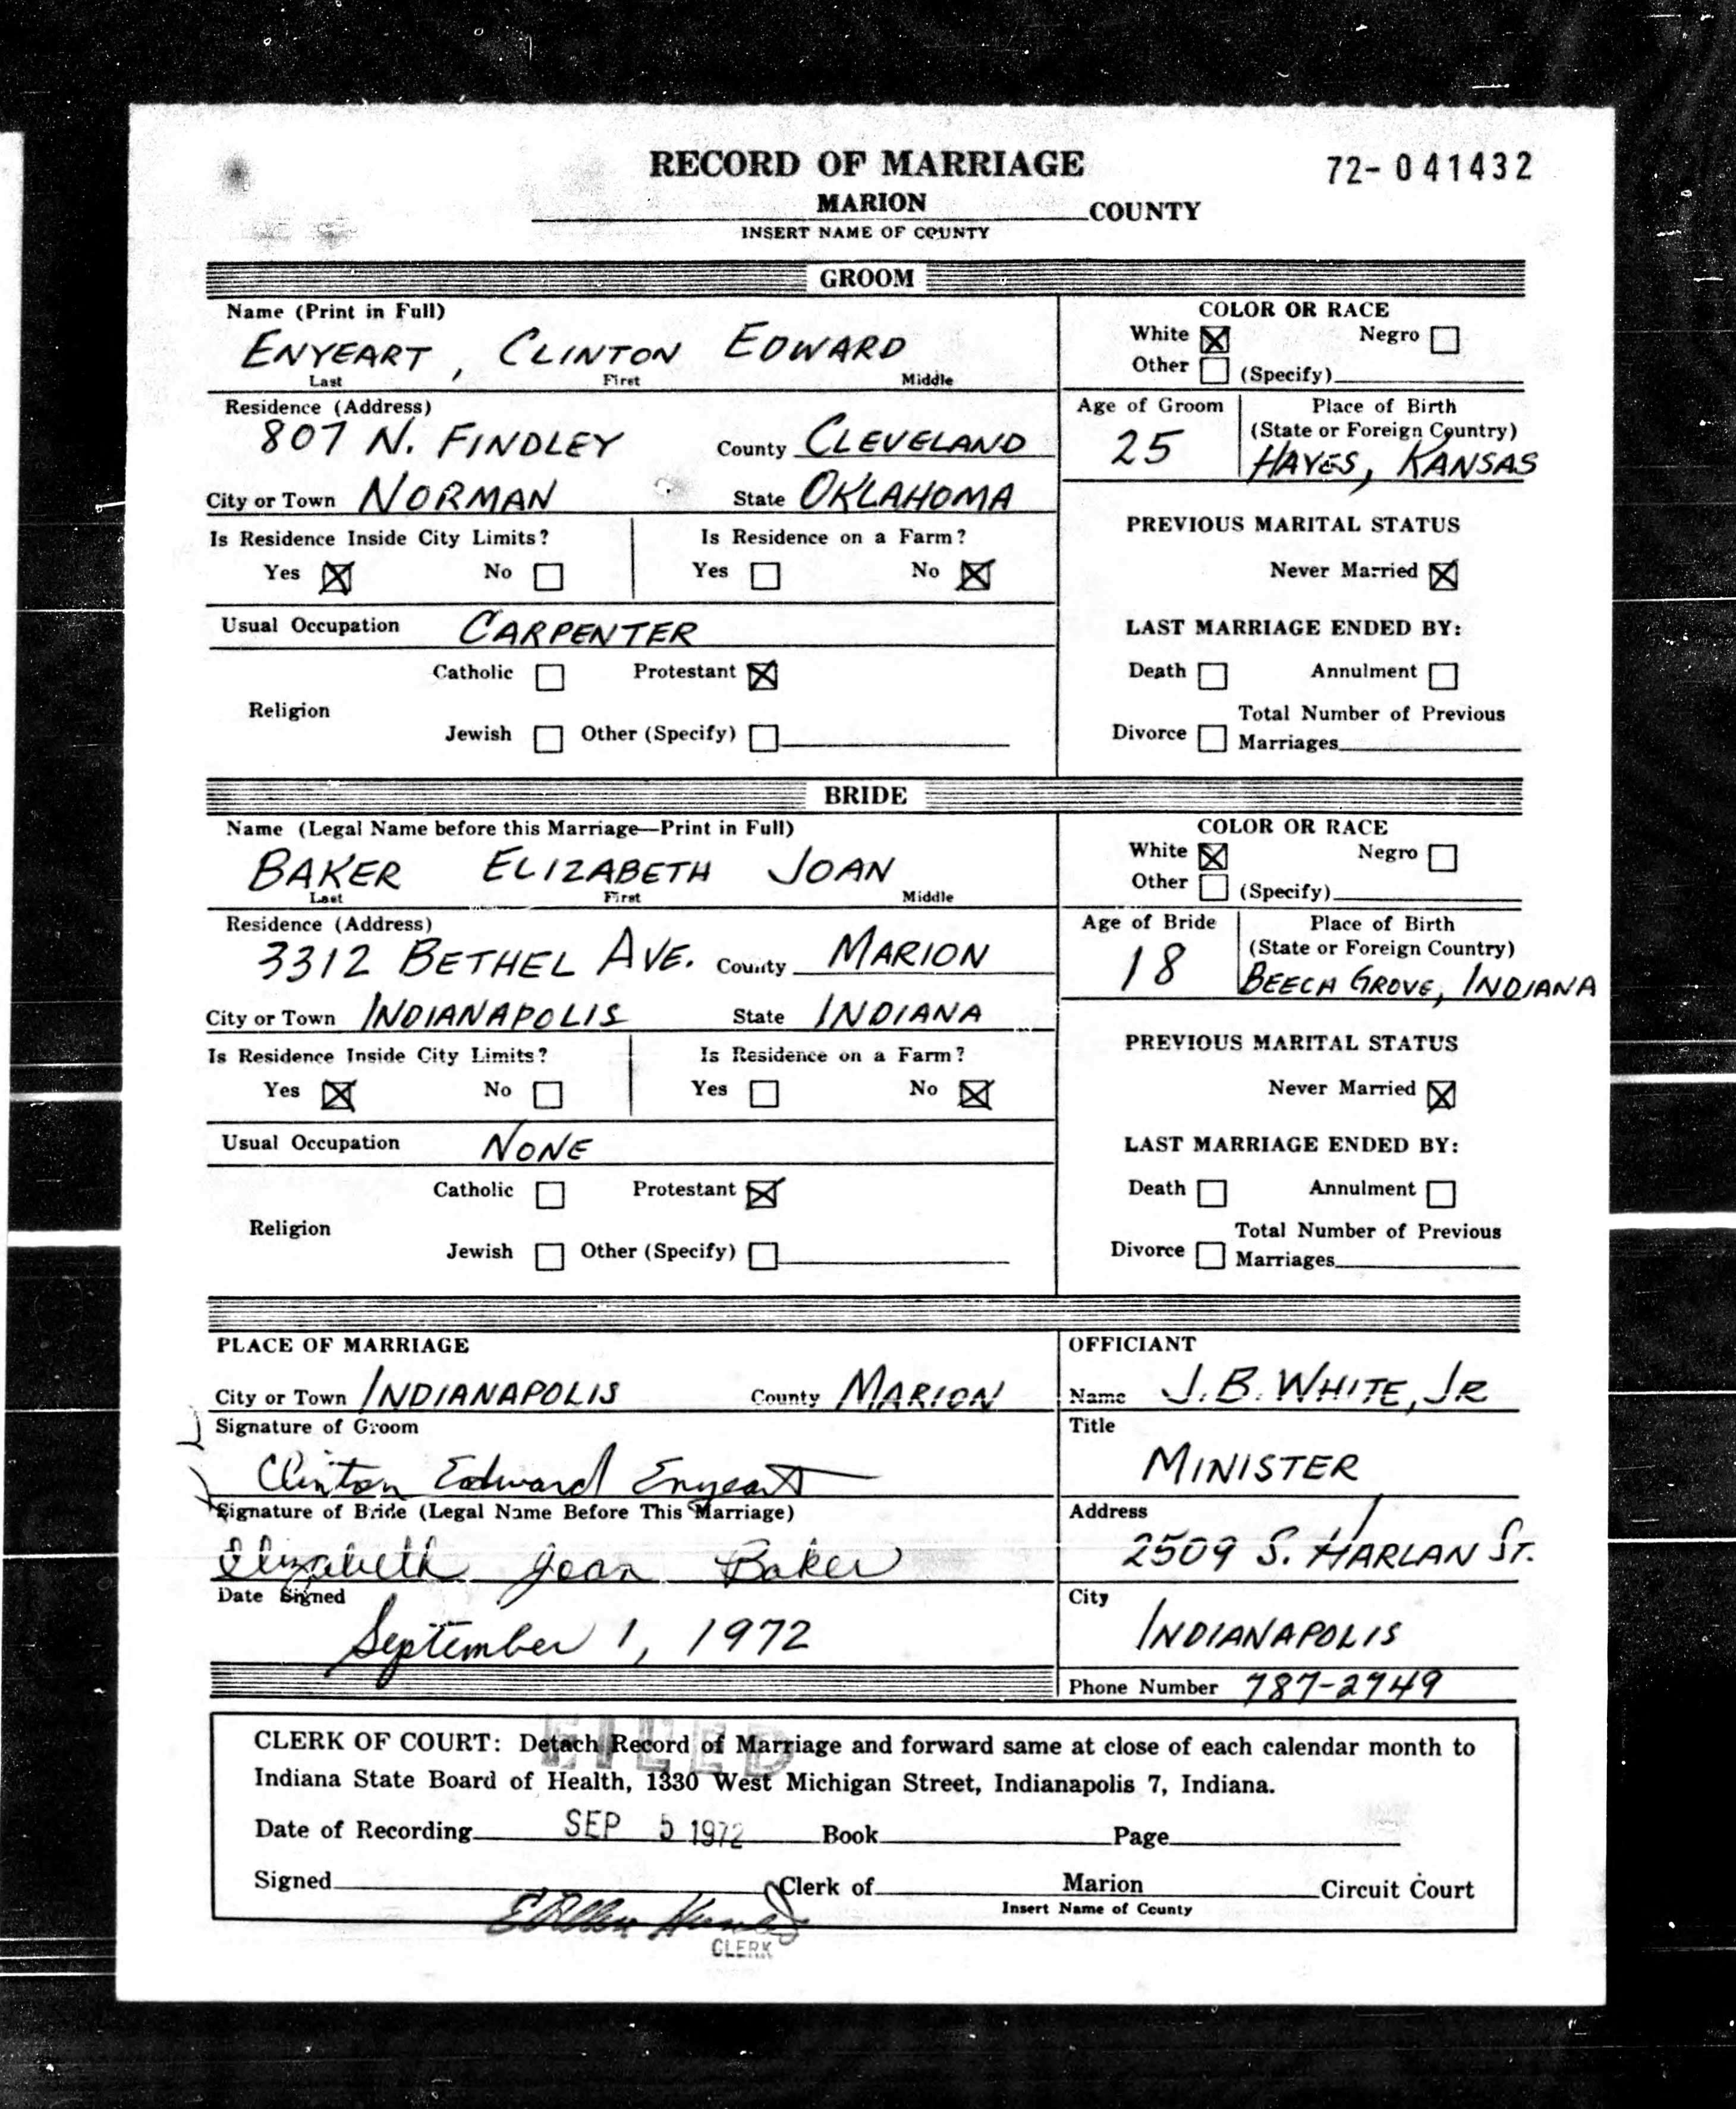 RECORD OF MARRIAGE
72-041432
MARION COUNTY
INSERT NAME OF COUNTY
GROOM
Name (Print in Full)
ENYEART, CLINTON EDWARD
Last First Middle
COLOR OR RACE
White ☒ Negro ☐
Other ☐ (Specify)
Residence (Address)
807 N. FINDLEY County CLEVELAND
City or Town NORMAN State OKLAHOMA
Age of Groom
25
Place of Birth
(State or Foreign Country)
HAYES, KANSAS
Is Residence Inside City Limits?
Yes ☒ No ☐
Is Residence on a Farm?
Yes ☐ No ☒
PREVIOUS MARITAL STATUS
Never Married ☒
Usual Occupation CARPENTER
LAST MARRIAGE ENDED BY:
Death ☐ Annulment ☐
Divorce ☐ Total Number of Previous
Marriages
Religion
Catholic ☐ Protestant ☒
Jewish ☐ Other (Specify) ☐
BRIDE
Name (Legal Name before this Marriage—Print in Full)
BAKER ELIZABETH JOAN
Last First Middle
COLOR OR RACE
White ☒ Negro ☐
Other ☐ (Specify)
Residence (Address)
3312 BETHEL AVE. County MARION
City or Town INDIANAPOLIS State INDIANA
Age of Bride
18
Place of Birth
(State or Foreign Country)
BEECH GROVE, INDIANA
Is Residence Inside City Limits?
Yes ☒ No ☐
Is Residence on a Farm?
Yes ☐ No ☒
PREVIOUS MARITAL STATUS
Never Married ☒
Usual Occupation NONE
LAST MARRIAGE ENDED BY:
Death ☐ Annulment ☐
Divorce ☐ Total Number of Previous
Marriages
Religion
Catholic ☐ Protestant ☒
Jewish ☐ Other (Specify) ☐
PLACE OF MARRIAGE
City or Town INDIANAPOLIS County MARION
Signature of Groom
Clinton Edward Enyeart
Signature of Bride (Legal Name Before This Marriage)
Elizabeth Joan Baker
Date Signed
September 1, 1972
OFFICIANT
Name J.B. WHITE, JR
Title
MINISTER
Address
2509 S. HARLAN ST.
City
INDIANAPOLIS
Phone Number 787-2749
FILED
CLERK OF COURT: Detach Record of Marriage and forward same at close of each calendar month to
Indiana State Board of Health, 1330 West Michigan Street, Indianapolis 7, Indiana.
Date of Recording SEP 5 1972 Book Page
Signed Clerk of Marion Circuit Court
Insert Name of County
CLERK